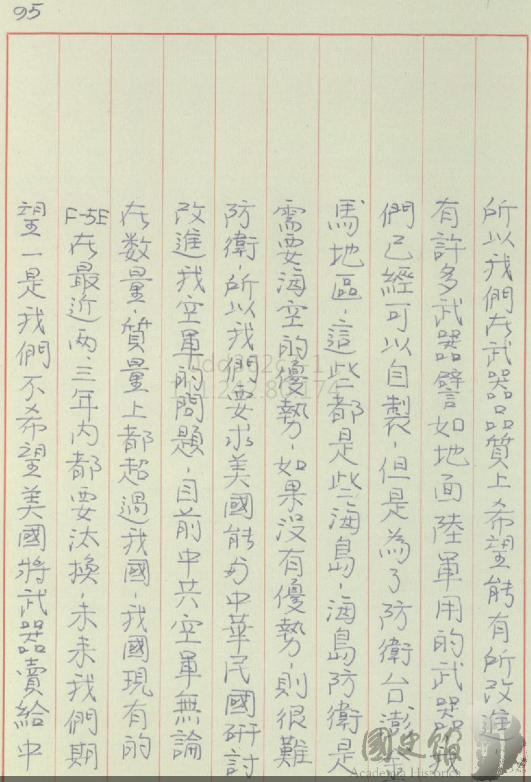 95
所以我們在武器品質上希望能有所改進
有許多武器譬如地面陸軍用的武器我
們已經可以自製，但是為了防衛台澎金
馬地區，這些都是些海島，海島防衛是
需要海空的優勢，如果沒有優勢，則很難
防衛，所以我們要求美國能為中華民國研討
改進我空軍的問題，目前中共空軍無論
在數量，質量上都超過我國，我國現有的
F-5E在最近兩、三年內都要汰換，未來我們期
望一是我們不希望美國將武器賣給中
國史館
Academia Historica